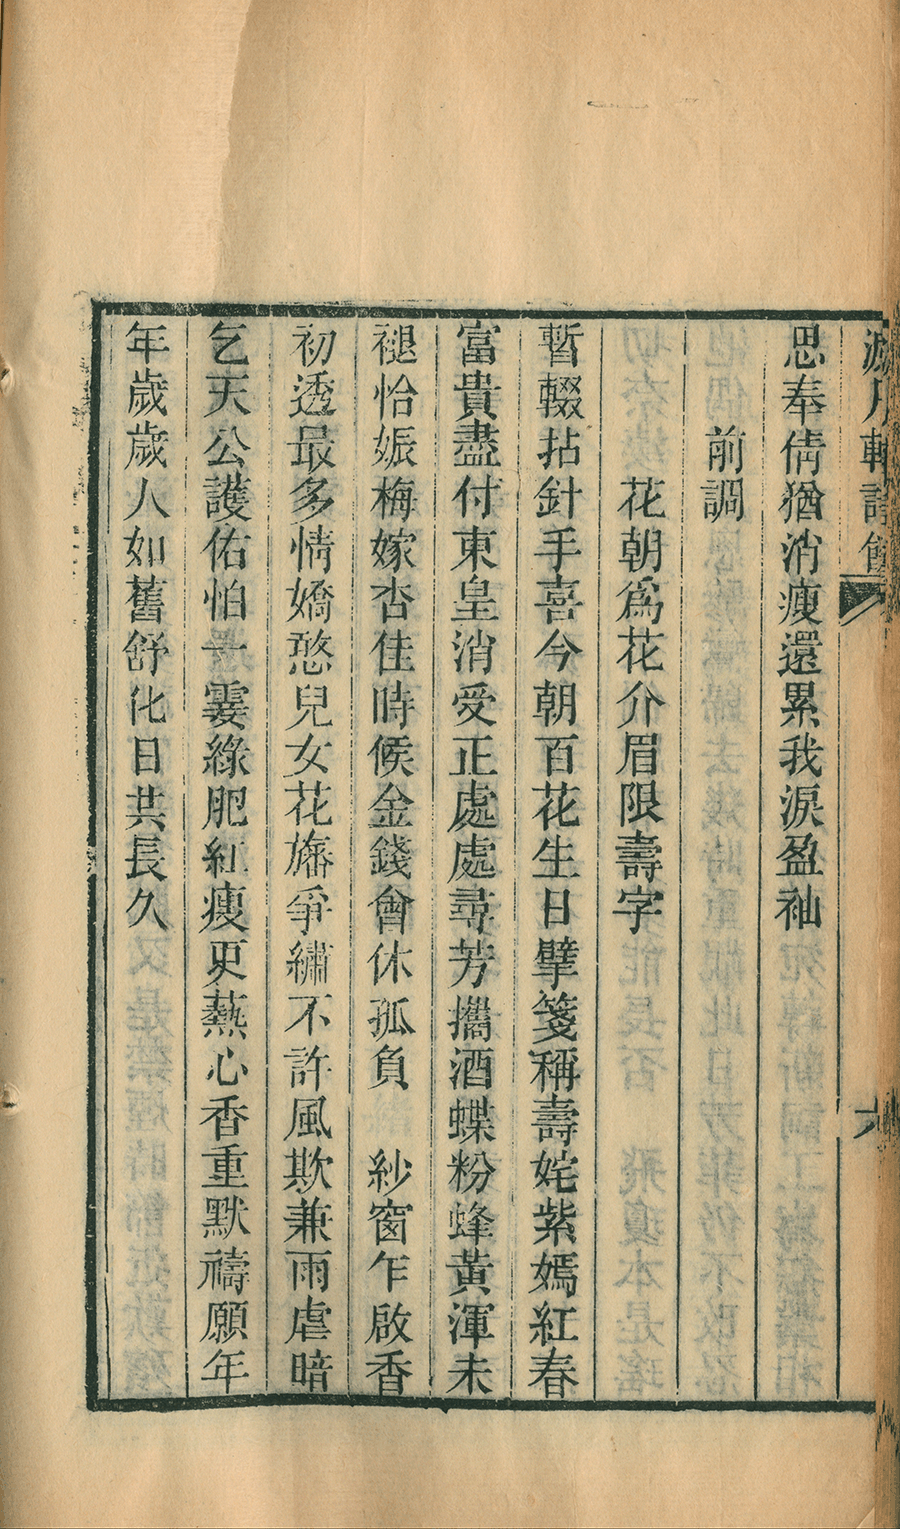 濾月軒詩餘 六
思奉倩猶消瘦還累我淚盈袖
前調
花朝爲花介眉限壽字
暫輟拈針手喜今朝百花生日擘箋稱壽姹紫嫣紅春
富貴盡付東皇消受正處處尋芳攜酒蝶粉蜂黃渾未
褪恰娠梅嫁杏佳時候金錢會休孤負　紗窗乍啟香
初透最多情嬌憨兒女花旛爭繡不許風欺兼雨虐暗
乞天公護佑怕一霎綠肥紅瘦更爇心香重默禱願年
年歲歲人如舊舒化日共長久